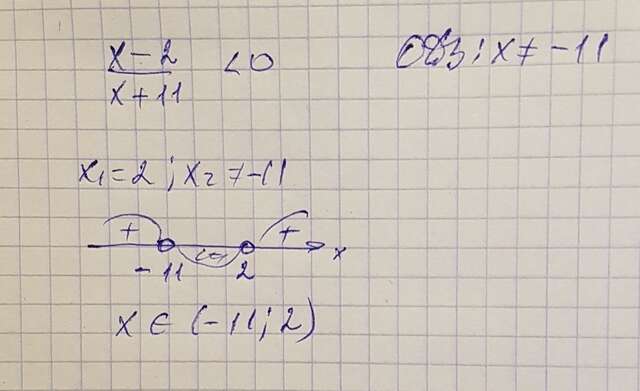 x-2
x+11 <0
ОДЗ: x≠-11
x₁=2; x₂≠-11
+ (-) + x
-11 2
x∈(-11;2)